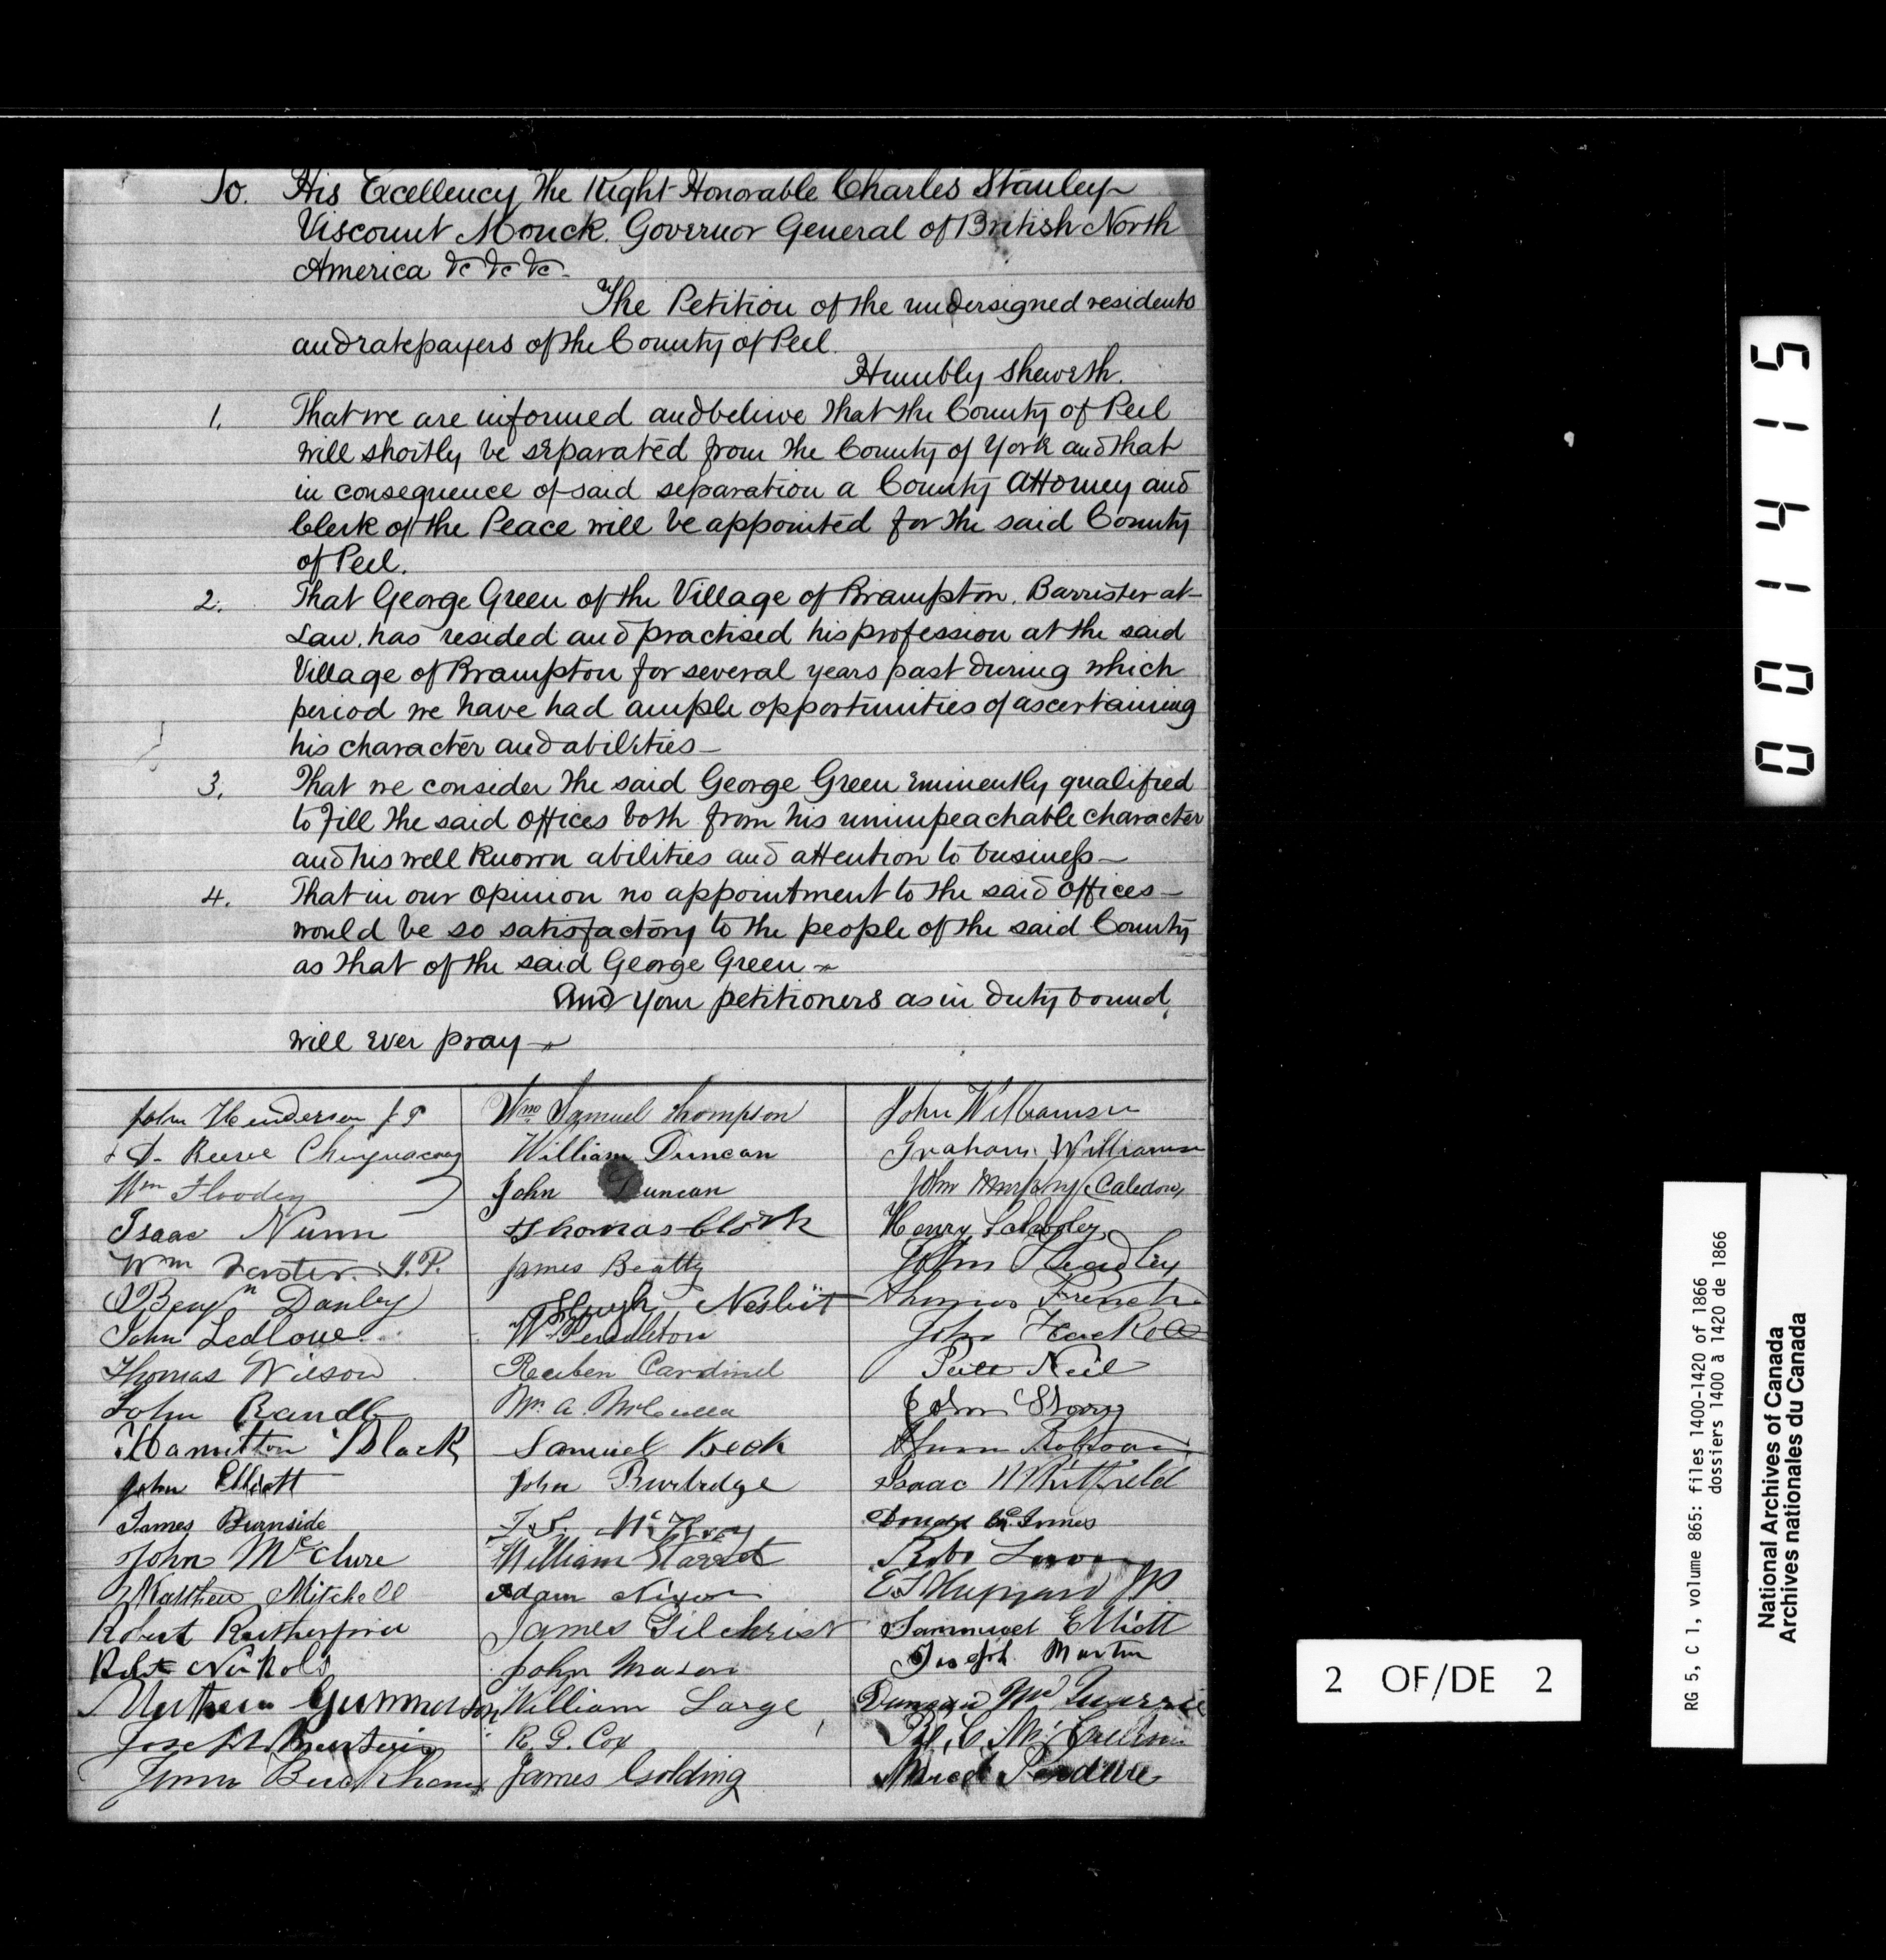 To. His Excellency The Right Honorable Charles Stanley
Viscount Monck. Governor General of British North
America &c &c &c.
The Petition of the undersigned residents
and ratepayers of the County of Peel.
Humbly sheweth.
1. That we are informed and believe that the County of Peel
will shortly be separated from the County of York and that
in consequence of said separation a County Attorney and
Clerk of the Peace will be appointed for the said County
of Peel.
2. That George Green of the Village of Brampton, Barrister at
Law, has resided and practised his profession at the said
Village of Brampton for several years past during which
period we have had ample opportunities of ascertaining
his character and abilities—
3. That we consider the said George Green eminently qualified
to fill the said offices both from his unimpeachable character
and his well known abilities and attention to business—
4. That in our opinion no appointment to the said offices—
would be so satisfactory to the people of the said County
as that of the said George Green
And your petitioners as in duty bound,
will ever pray
John Henderson J P
Reeve Chinguacousy
Wm
Isaac Nunn
Wm J.P.
Benjn Danby
John Ledlowe
Thomas Wilson
John
Hamilton Black
John Elliott
James Burnside
John McClure
Matthew Mitchell
Robert Rutherford
Robt Nichols
Gummerson
Joseph
Wm. Samuel Thompson
William Duncan
John Duncan
Thomas Clark
James Beatty
Hugh Nesbit
W Pendleton
Reuben Cardinel
Wm. A.
Samuel Beck
John Burbridge
William
Adam Nixon
James Gilchrist
John Mason
William Large
R. G. Cox
James Golding
John Williamson
Graham Williamson
John Murphy Caledon
Henry
John
Thomas French
John
Neil
John Story
Isaac Whitfield
McInnes
Robt
JP
Sammuel Elliott
Joseph Martin
Duncan
0 0 1 4 1 5
2 OF/DE 2
RG 5, C 1, volume 865: files 1400-1420 of 1866
dossiers 1400 à 1420 de 1866
National Archives of Canada
Archives nationales du Canada